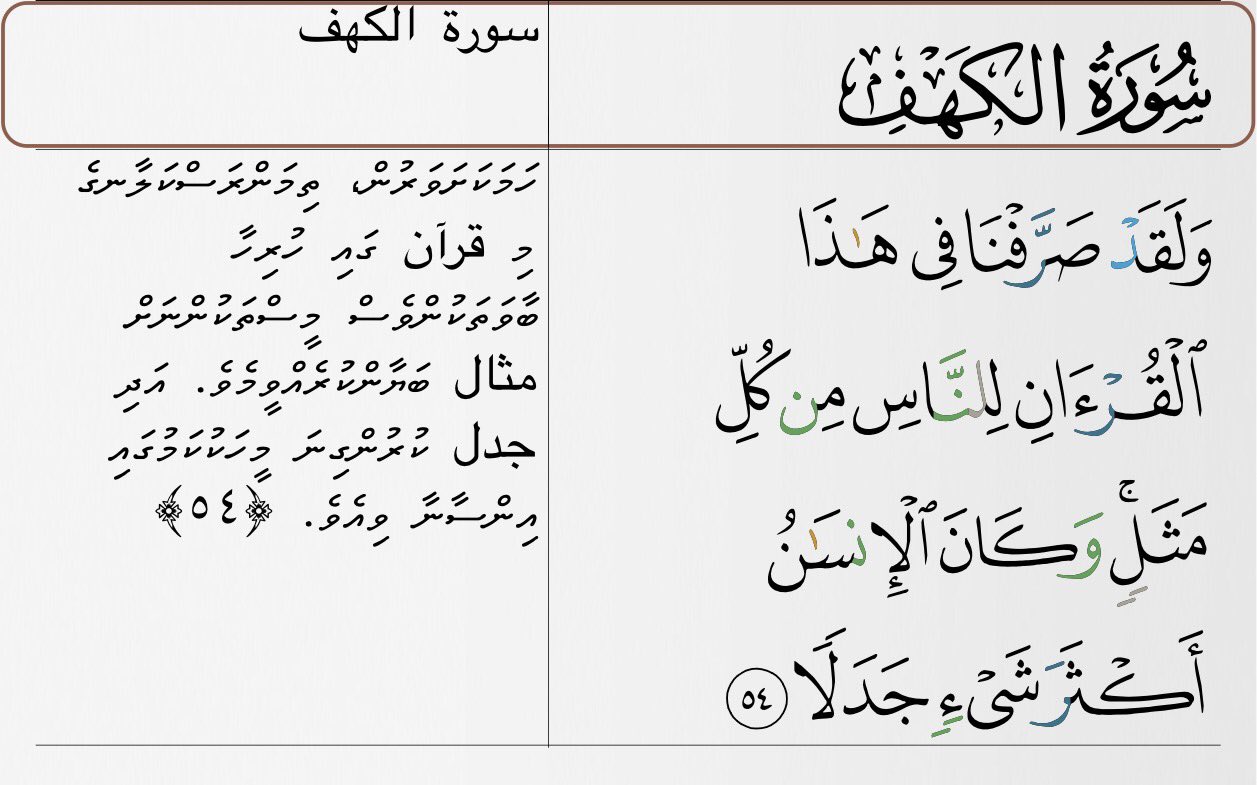 سُورَةُ الكَهْفِ
وَلَقَدْ صَرَّفْنَا فِى هَـٰذَا
ٱلْقُرْءَانِ لِلنَّاسِ مِن كُلِّ
مَثَلٍۢ ۚ وَكَانَ ٱلْإِنسَـٰنُ
أَكْثَرَ شَىْءٍۢ جَدَلًا ٥٤
سورة الكهف
ހަމަކަށަވަރުން، ތިމަންރަސްކަލާނގެ
މި قرآن ގައި ހުރިހާ
ބާވަތަކުންވެސް މީސްތަކުންނަށް
مثال ބަޔާންކުރެއްވީމެވެ. އަދި
جدل ކުރުންގިނަ މީހަކުކަމުގައި
އިންސާނާ ވިއެވެ. ﴿٥٤﴾